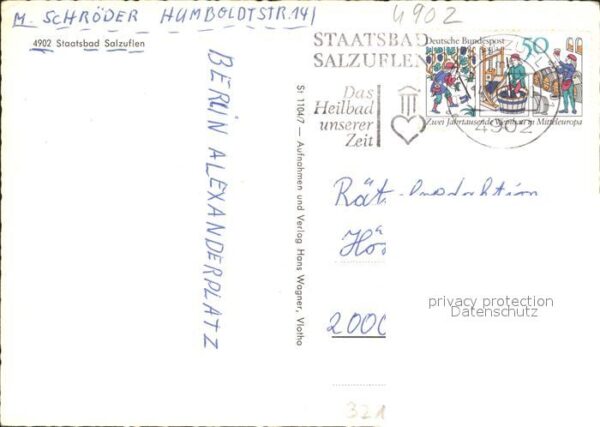 M. SCHRÖDER HUMBOLDTSTR. 14/
4902
4902 Staatsbad Salzuflen
BERLIN ALEXANDERPLATZ
St 1104/7 — Aufnahmen und Verlag Hans Wagner, Vlotho
STAATSBAD
SALZUFLEN
Das
Heilbad
unserer
Zeit
Deutsche Bundespost 50
Zwei Jahrtausende Weinbau in Mitteleuropa
4902
Hö
2000
privacy protection
Datenschutz
321